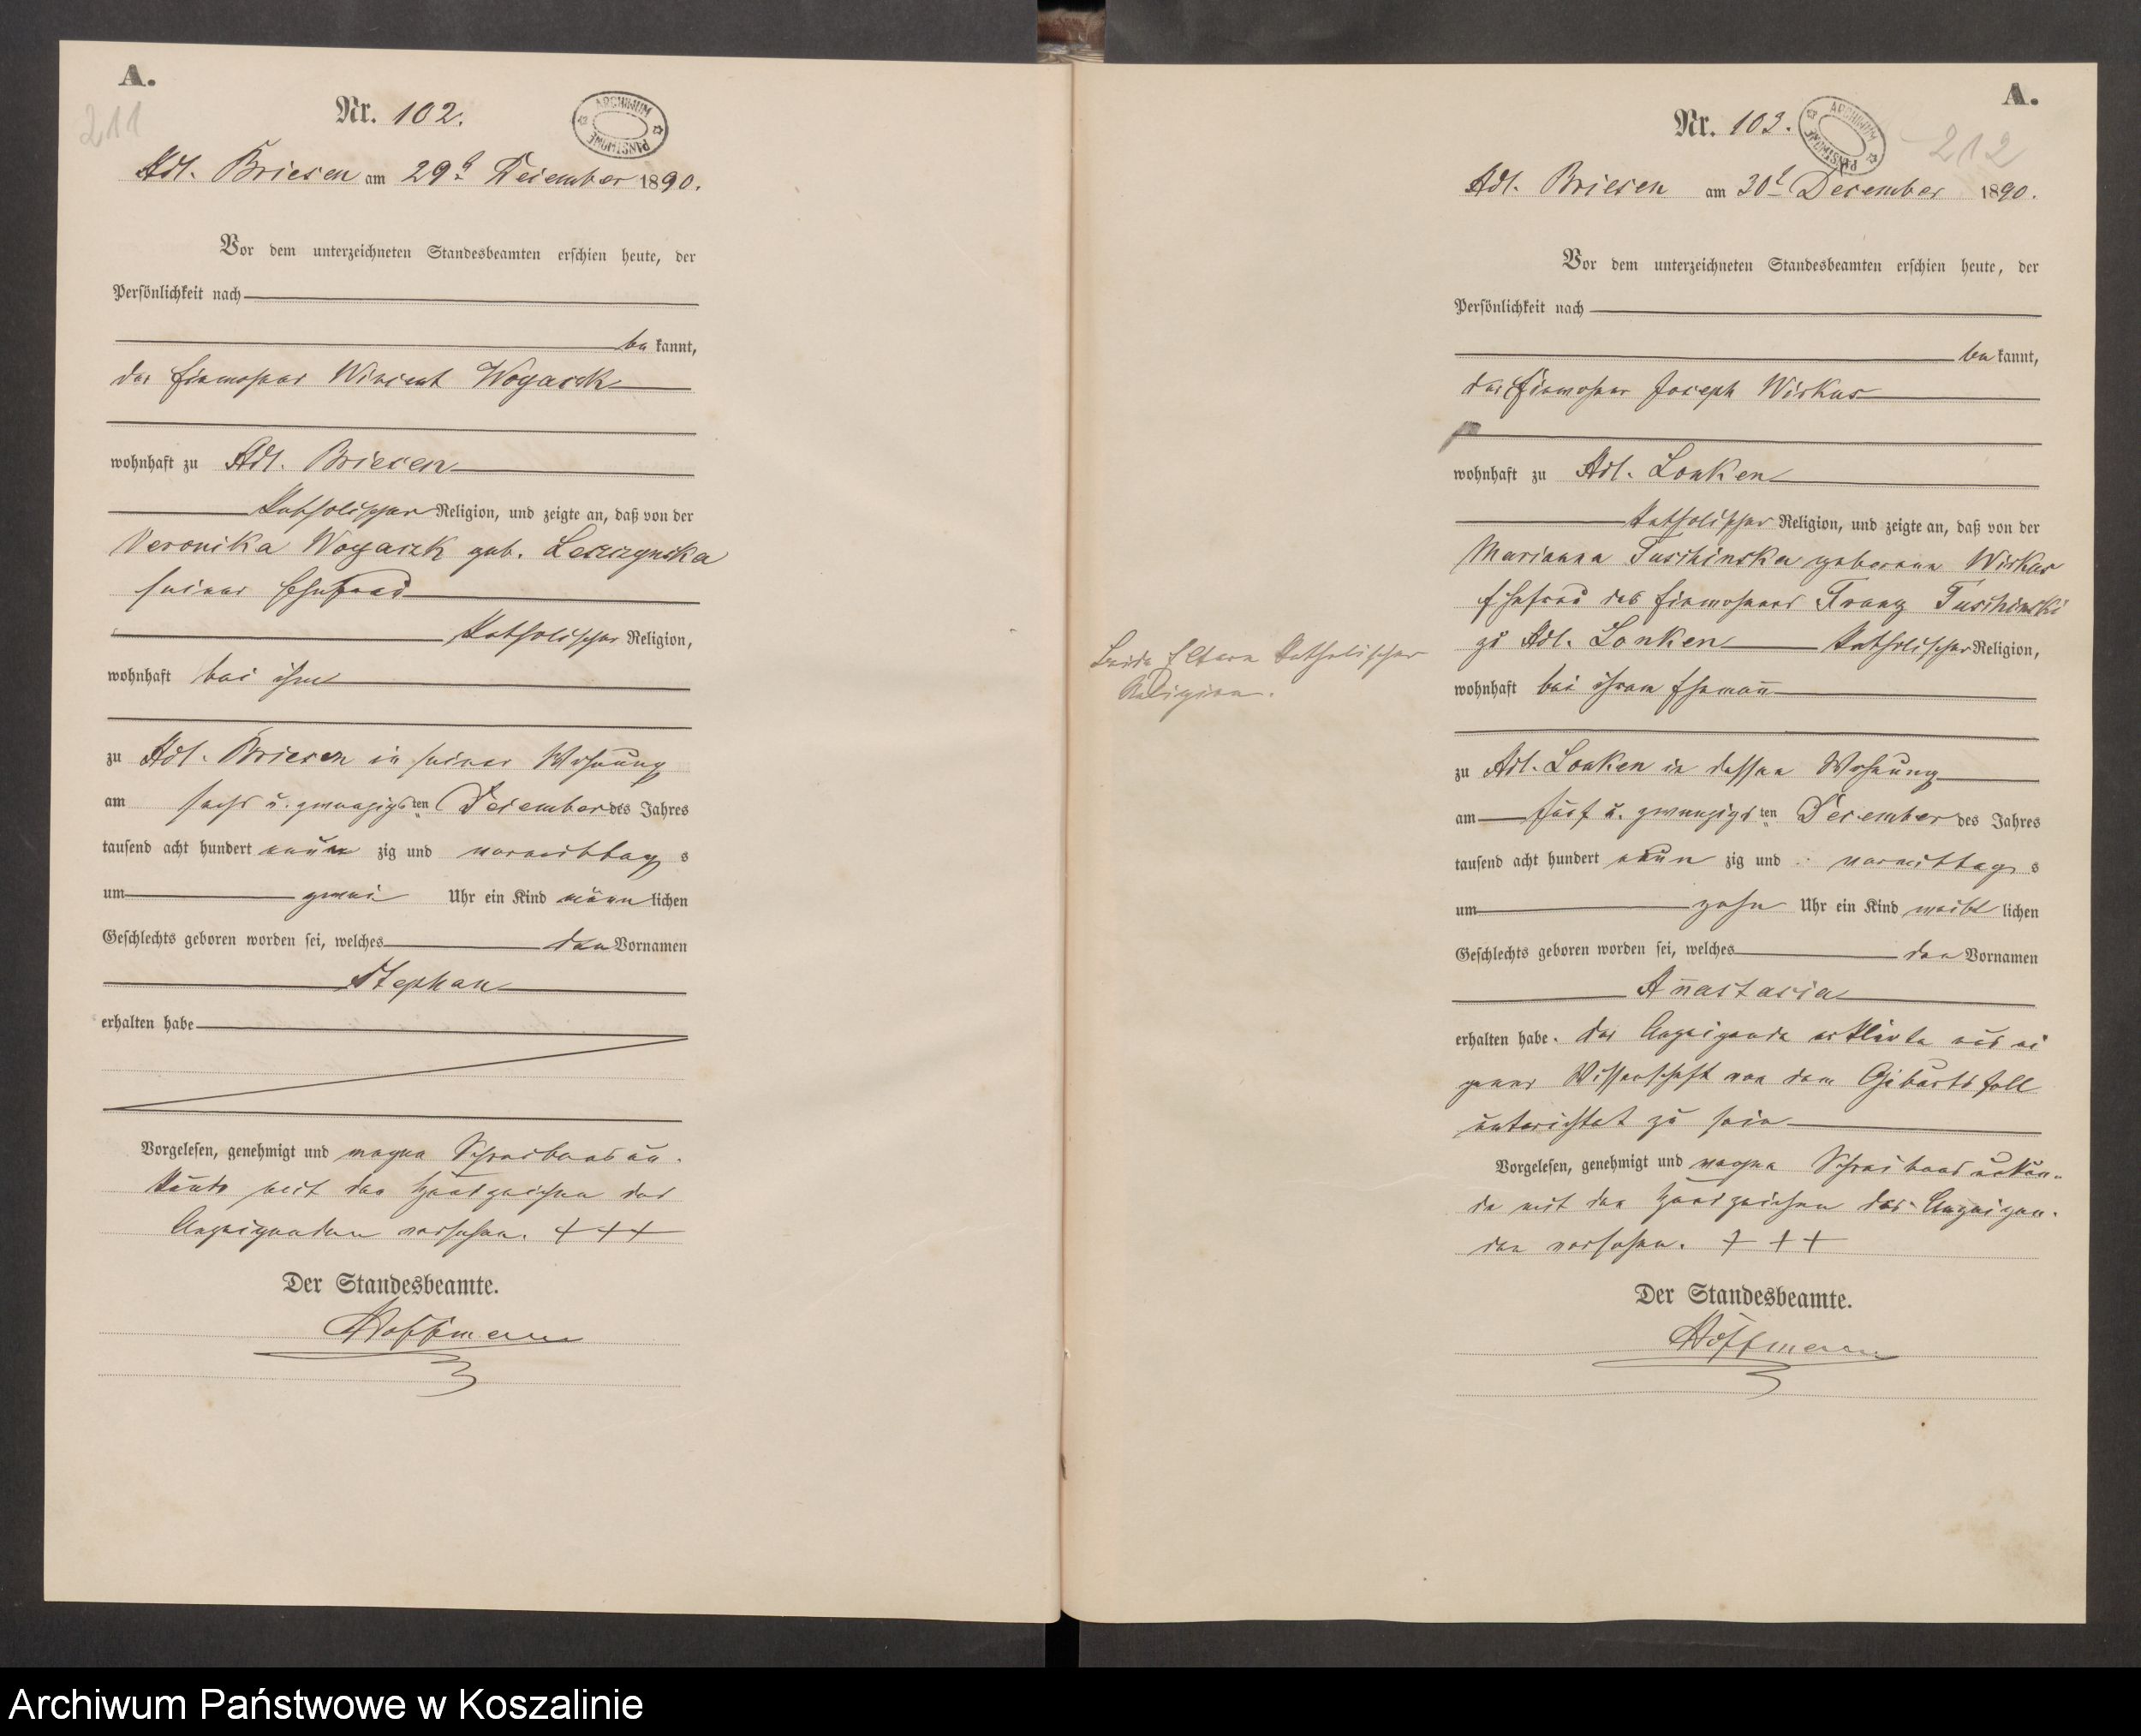 A.
211
Nr. 102.
ARCHIWUM PAŃSTWOWE
Adl. Briesen am 29t December 1890.
Vor dem unterzeichneten Standesbeamten erschien heute, der
Persönlichkeit nach
be kannt,
der Einwohner Vincent Wogaczk
wohnhaft zu Adl. Briesen
katholischer Religion, und zeigte an, daß von der
Veronika Wogaczk geb. Leszczynska
seiner Ehefrau
katholischer Religion,
wohnhaft bei ihm
zu Adl. Briesen in seiner Wohnung
am sechs u. zwanzigsten December des Jahres
tausend acht hundert neun zig und vormittag s
um zwei Uhr ein Kind männ lichen
Geschlechts geboren worden sei, welches den Vornamen
Stephan
erhalten habe
Vorgelesen, genehmigt und wegen Schreibensun-
kunde mit den Handzeichen des
Anzeigenden versehen. +++
Der Standesbeamte.
Hoffmann
A.
212
Nr. 103.
ARCHIWUM PAŃSTWOWE
Adl. Briesen am 30t December 1890.
Vor dem unterzeichneten Standesbeamten erschien heute, der
Persönlichkeit nach
be kannt,
der Einwohner Joseph Wirkus
wohnhaft zu Adl. Lonken
katholischer Religion, und zeigte an, daß von der
Marianna Tuschinska geborene Wirkus
Ehefrau des Einwohners Franz Tuschinski
zu Adl. Lonken katholischer Religion,
Beide Eltern katholischer
Religion.
wohnhaft bei ihrem Ehemann
zu Adl. Lonken in dessen Wohnung
am fünf u. zwanzigsten December des Jahres
tausend acht hundert neun zig und vormittag s
um zehn Uhr ein Kind weib lichen
Geschlechts geboren worden sei, welches den Vornamen
Anastasia
erhalten habe. Der Anzeigende erklärte aus ei
gener Wissenschaft von dem Geburtsfall
unterichtet zu sein
Vorgelesen, genehmigt und wegen Schreibensunkun-
de mit den Handzeichen des Anzeigen-
den versehen. +++
Der Standesbeamte.
Hoffmann
Archiwum Państwowe w Koszalinie